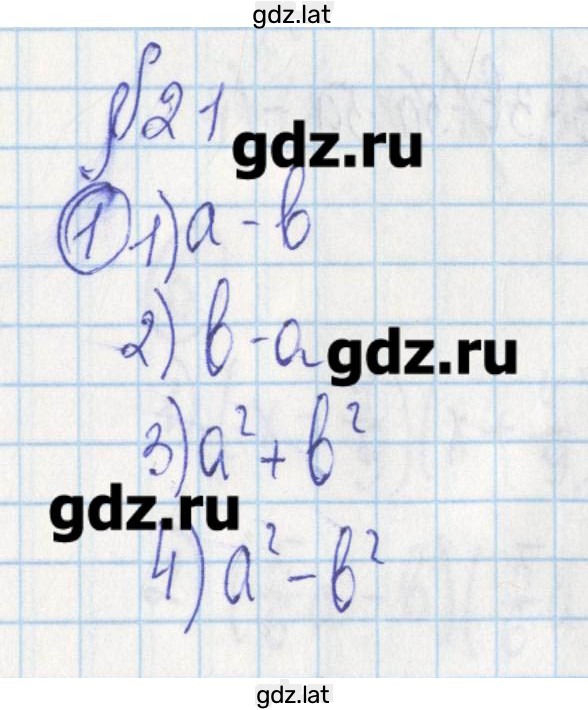 gdz.lat
§ 21
gdz.ru
1 1) a - b
2) b - a
gdz.ru
3) a² + b²
gdz.ru
4) a² - b²
gdz.lat